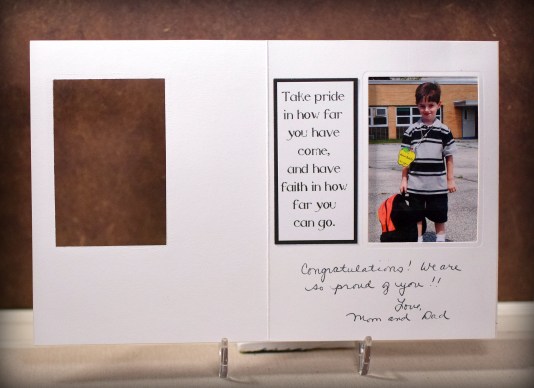 Take pride
in how far
you have
come,
and have
faith in how
far you
can go.
Congratulations! We are
so proud of you!!
Love,
Mom and Dad